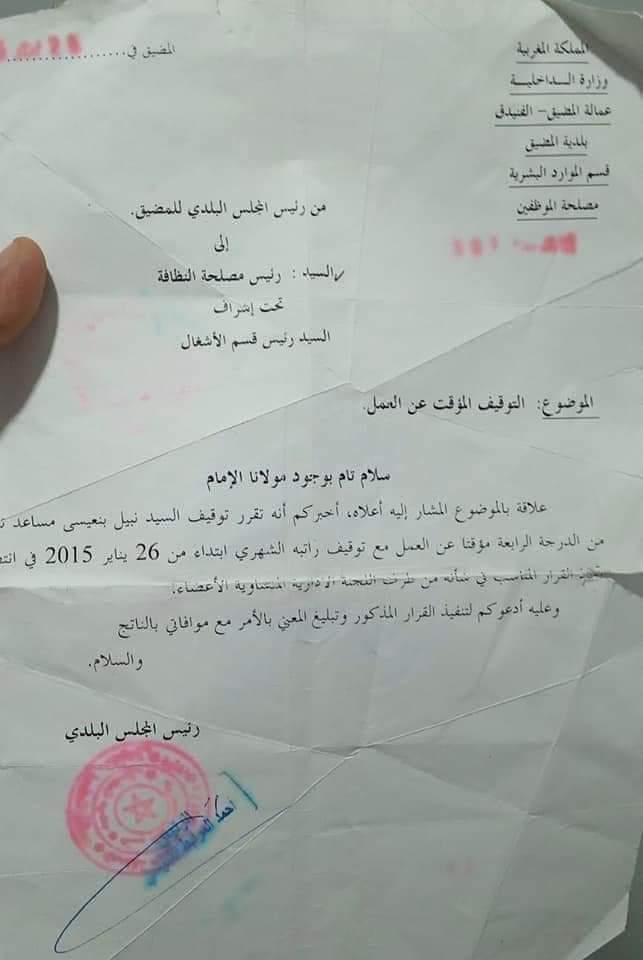 المملكة المغربية
وزارة الداخلية
عمالة المضيق- الفنيدق
بلدية المضيق
قسم الموارد البشرية
مصلحة الموظفين
المضيق في
من رئيس المجلس البلدي للمضيق.
إلى
السيد : رئيس مصلحة النظافة
تحت إشراف
السيد رئيس قسم الأشغال
الموضوع: التوقيف المؤقت عن العمل.
سلام تام بوجود مولانا الإمام
علاقة بالموضوع المشار إليه أعلاه، أخبركم أنه تقرر توقيف السيد نبيل بنعيسى مساعد
من الدرجة الرابعة مؤقتا عن العمل مع توقيف راتبه الشهري ابتداء من 26 يناير 2015 في
القرار المناسب في شأنه من طرف اللجنة الادارية المتساوية الأعضاء.
وعليه أدعوكم لتنفيذ القرار المذكور وتبليغ المعني بالأمر مع موافاتي بالناتج
والسلام.
رئيس المجلس البلدي